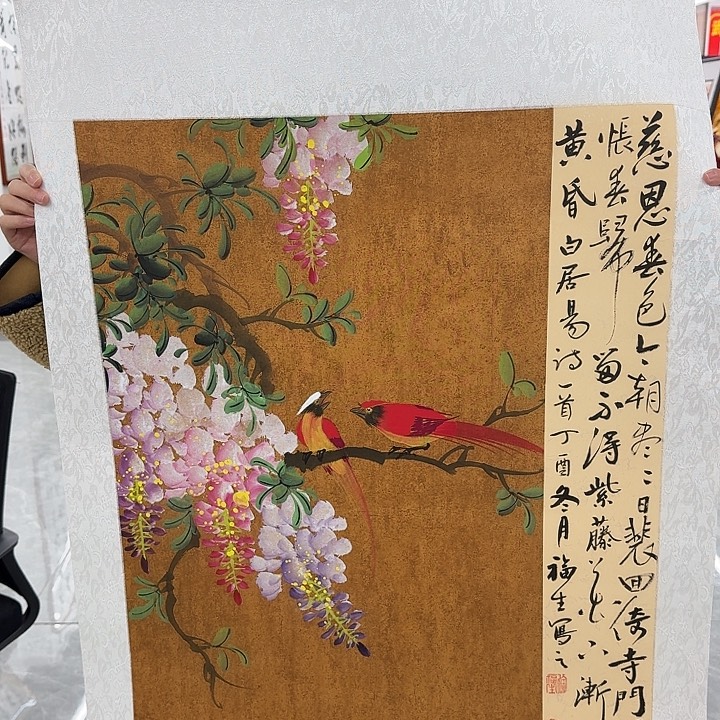 慈恩春色今朝尽々日裴回倚寺門
悵春歸留不得紫藤花下漸
黄昏 白居易诗一首丁酉冬月福生寫之